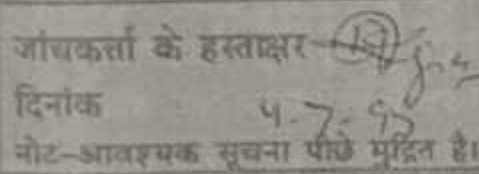 जांचकर्त्ता के हस्ताक्षर
दिनांक 4-7-95
नोट-आवश्यक सूचना पीछे मुद्रित है।